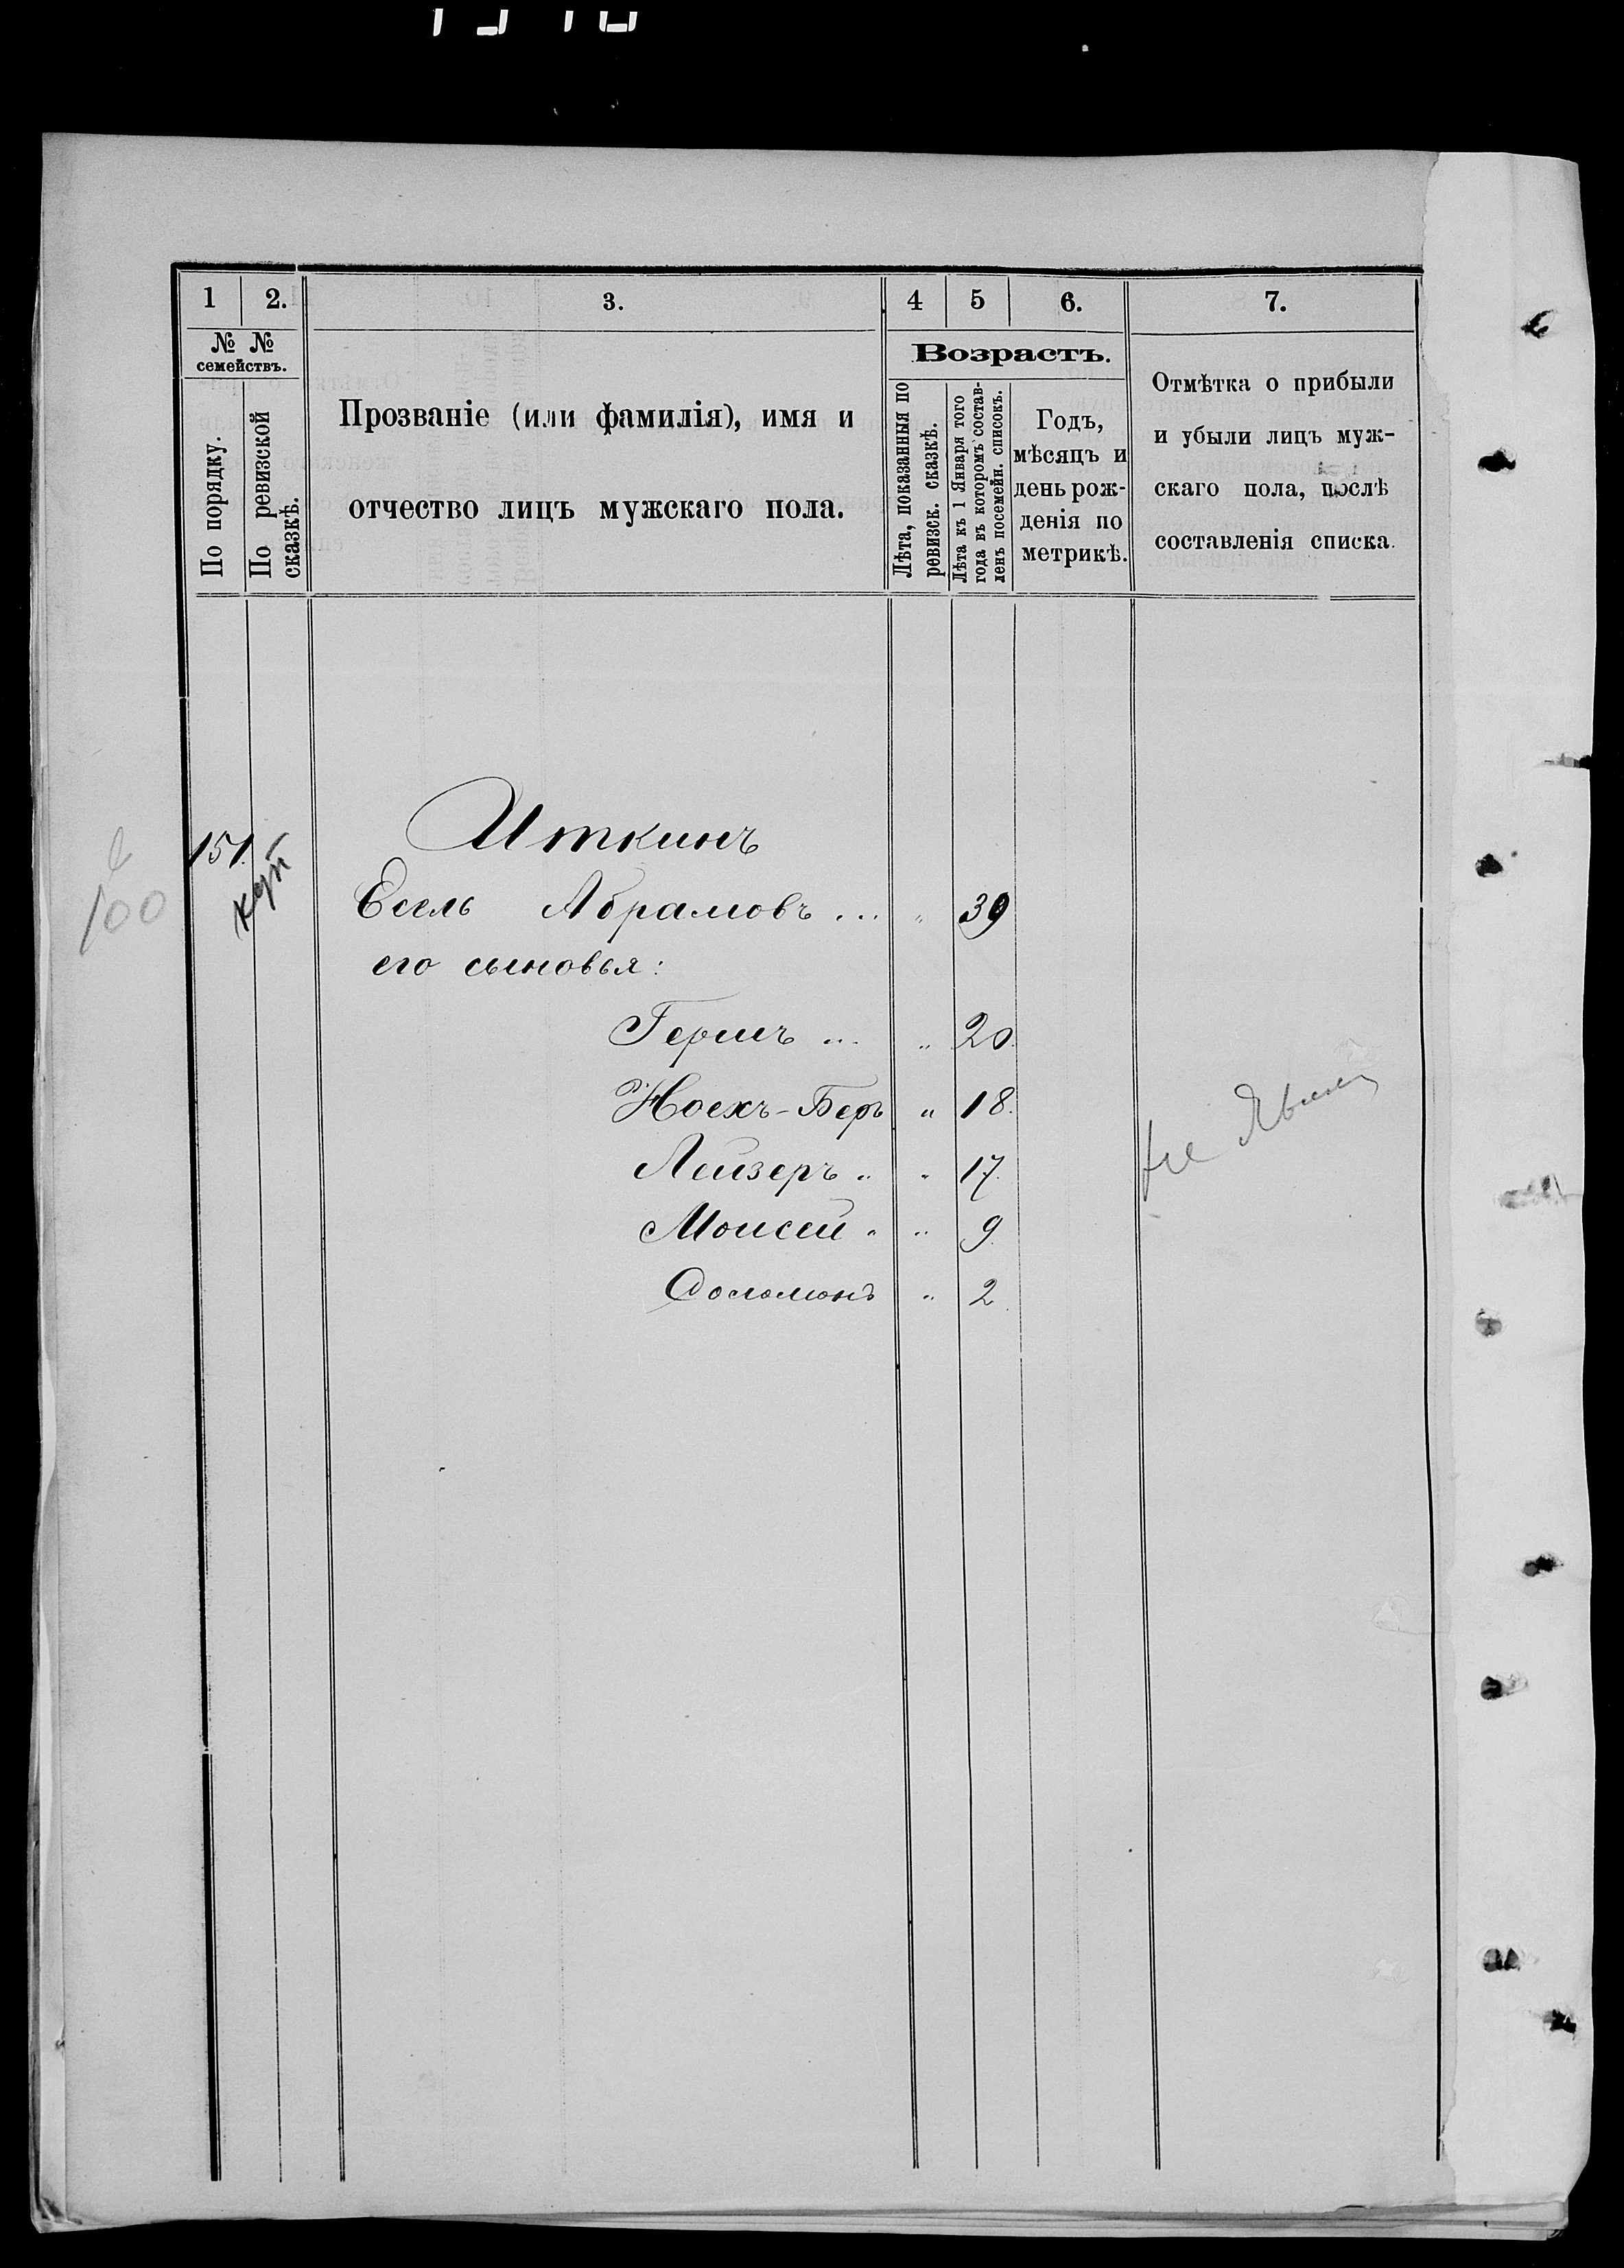 1 2. 3. 4 5 6. 7.
№ № семействъ.
По порядку.
По ревизской сказкѣ.
Прозваніе (или фамилія), имя и
отчество лицъ мужскаго пола.
Возрастъ.
Лѣта, показанныя по
ревизск. сказкѣ.
Лѣта къ 1 Января того
года въ которомъ состав-
ленъ посемейн. списокъ.
Годъ,
мѣсяцъ и
день рож-
денія по
метрикѣ.
Отмѣтка о прибыли
и убыли лицъ муж-
скаго пола, послѣ
составленія списка.
151. Иткинъ
100 куп Есель Абрамовъ ... " 39
его сыновья:
Гершъ ... " 20.
Ноехъ-Беръ " 18.
Лейзеръ " " 17.
Моисей " " 9.
Соломонъ " 2.
не